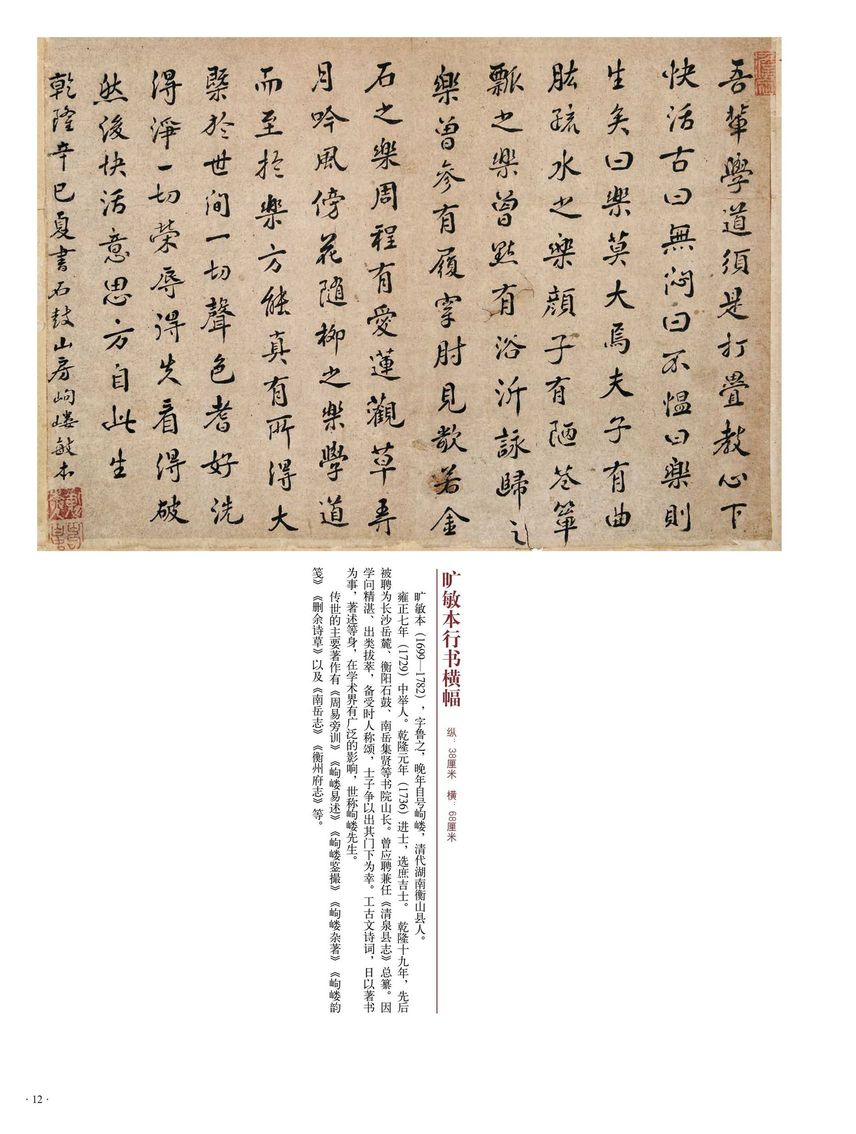 吾輩學道須是打疊教心下
快活古曰無悶曰不慍曰樂則
生矣曰樂莫大焉夫子有曲
肱疏水之樂顏子有陋巷簞
瓢之樂曾點有浴沂詠歸之
樂曾參有履穿肘見歌若金
石之樂周程有愛蓮觀草弄
月吟風傍花隨柳之樂學道
而至於樂方能真有所得大
槩於世間一切聲色耆好洗
得淨一切榮辱得失看得破
然後快活意思方自此生
乾隆辛巳夏書石鼓山房岣嶁敏本
旷敏本行书横幅
纵：38厘米　横：68厘米
旷敏本（1699—1782），字鲁之，晚年自号岣嵝，清代湖南衡山县人。
雍正七年（1729）中举人。乾隆元年（1736）进士，选庶吉士。　乾隆十九年，先后
被聘为长沙岳麓、衡阳石鼓、南岳集贤等书院山长。曾应聘兼任《清泉县志》总纂。因
学问精湛、出类拔萃，备受时人称颂，士子争以出其门下为幸。工古文诗词，日以著书
为事，著述等身，在学术界有广泛的影响，世称岣嵝先生。
传世的主要著作有《周易旁训》《岣嵝易述》《岣嵝鉴撮》《岣嵝杂著》《岣嵝韵
笺》《删余诗草》以及《南岳志》《衡州府志》等。
· 12 ·